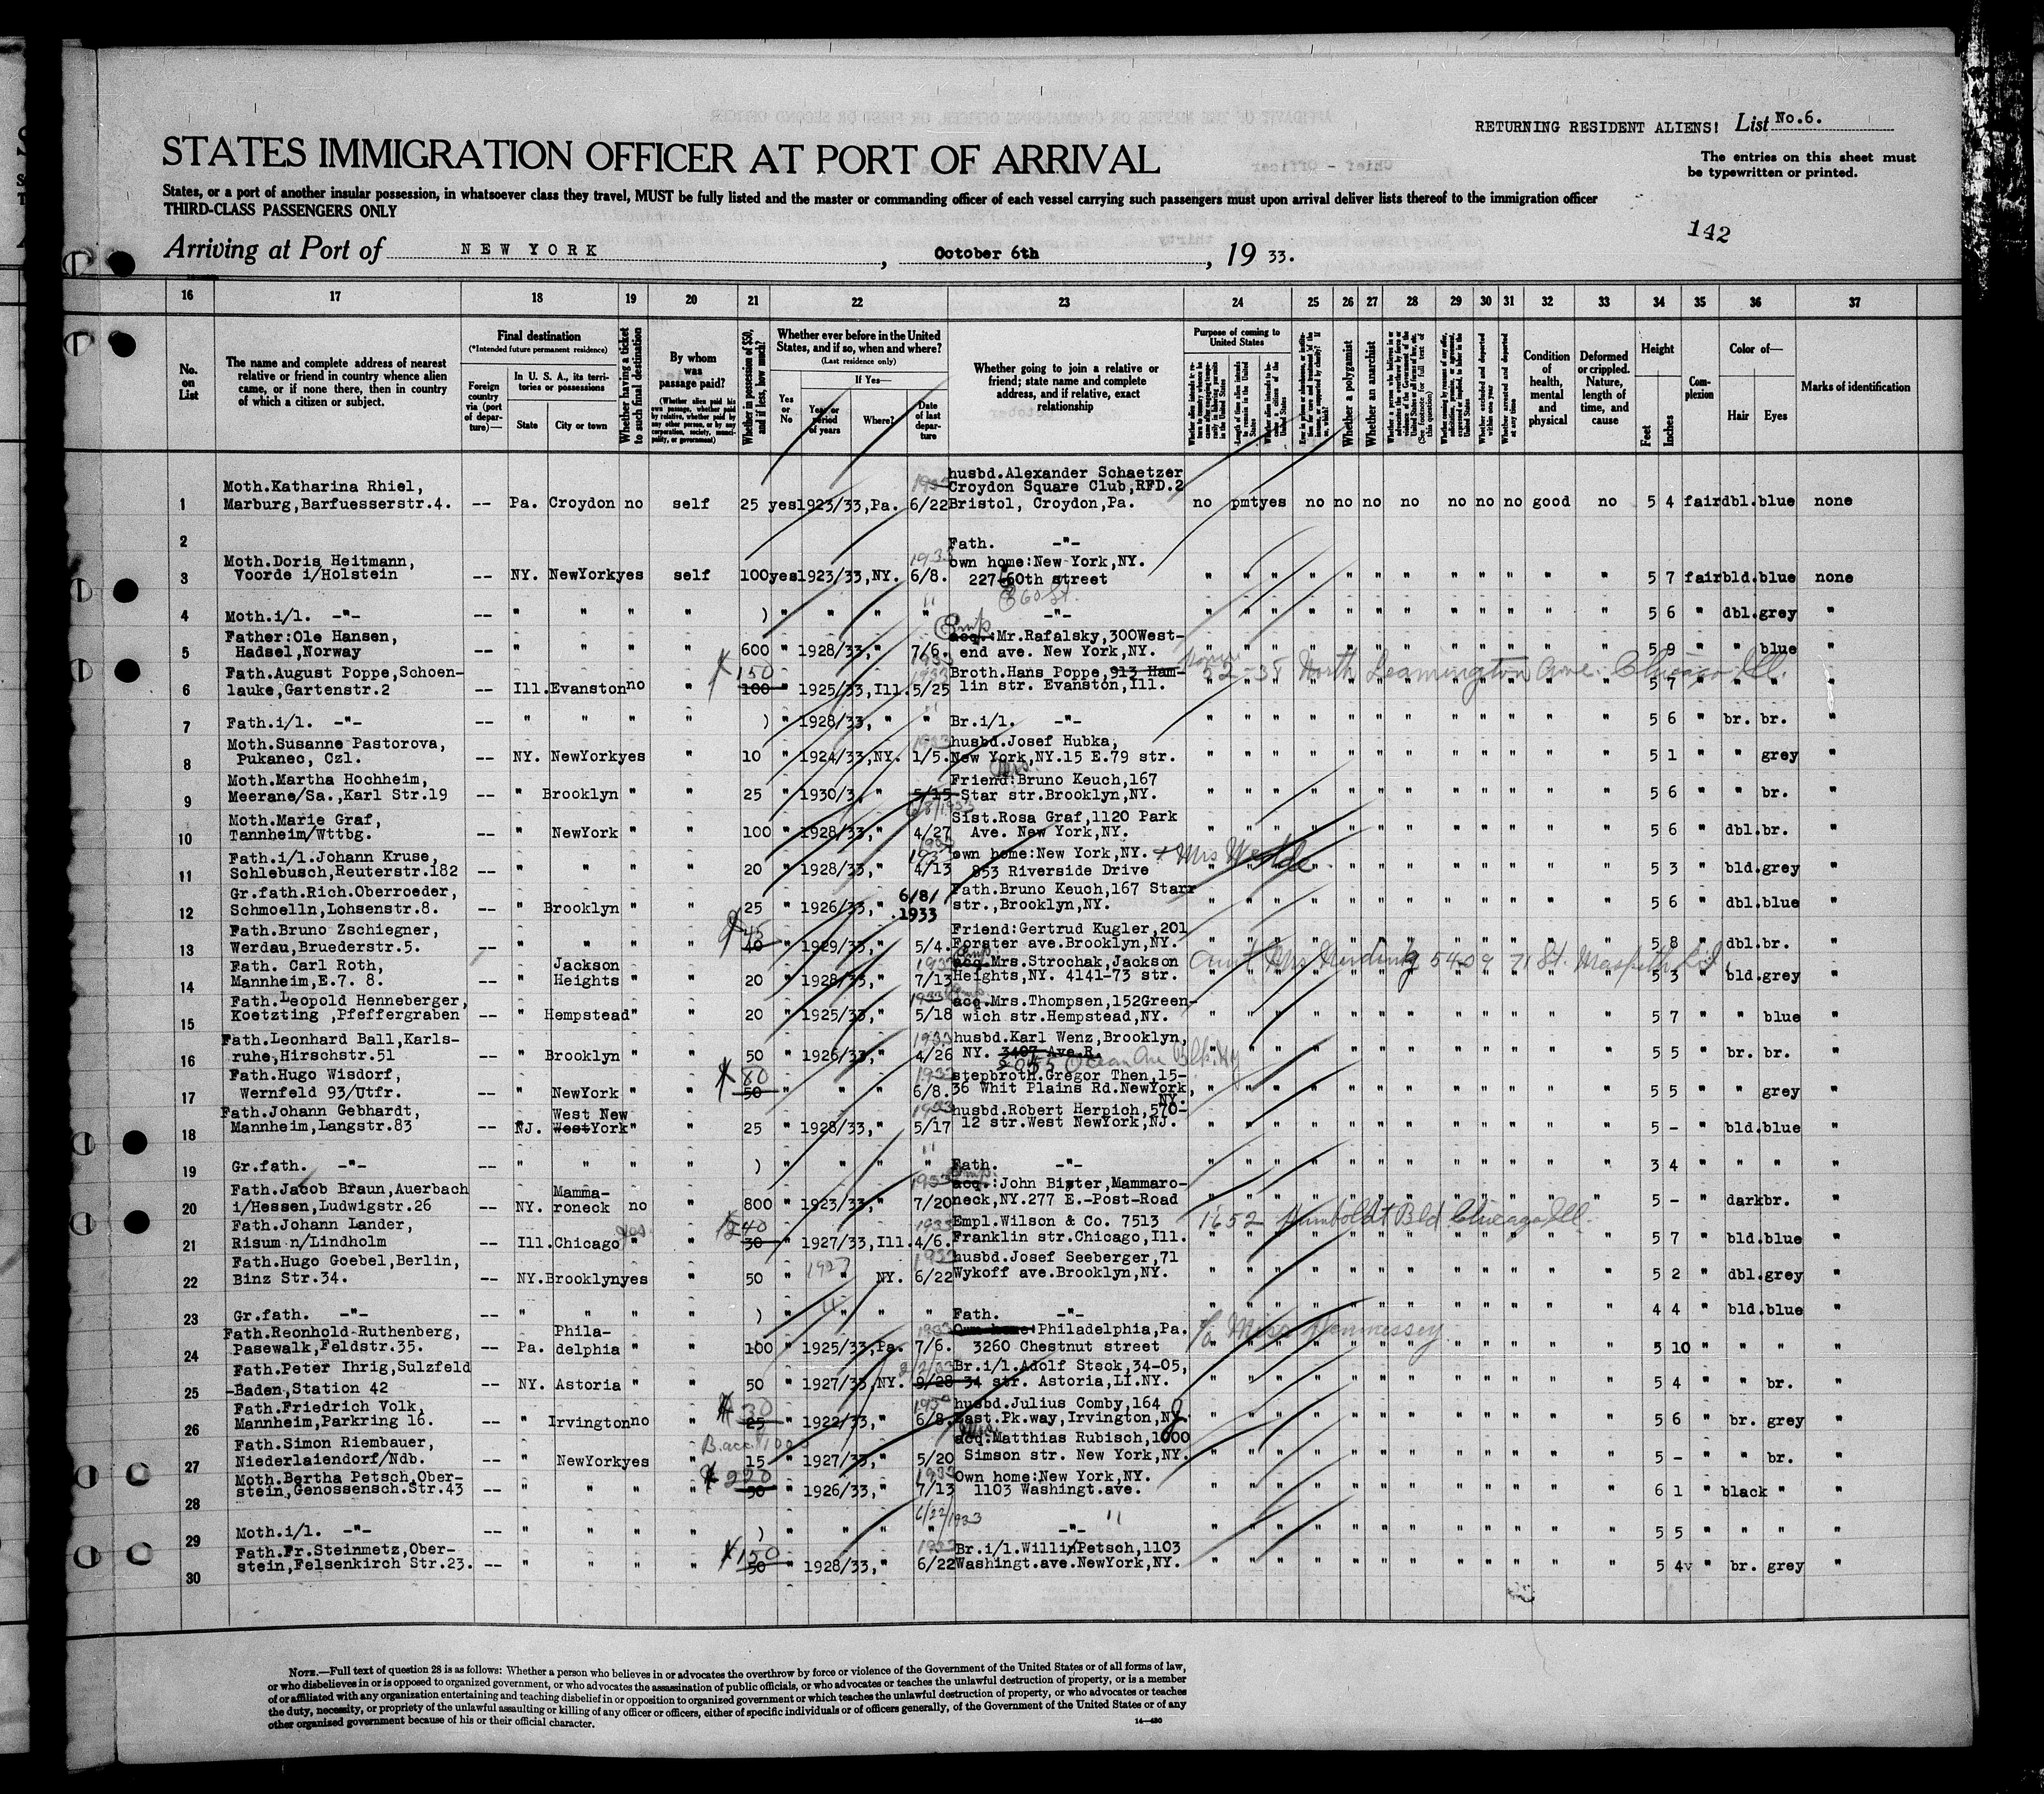 RETURNING RESIDENT ALIENS! List No.6.
STATES IMMIGRATION OFFICER AT PORT OF ARRIVAL
The entries on this sheet must
be typewritten or printed.
States, or a port of another insular possession, in whatsoever class they travel, MUST be fully listed and the master or commanding officer of each vessel carrying such passengers must upon arrival deliver lists thereof to the immigration officer
THIRD-CLASS PASSENGERS ONLY
142
Arriving at Port of NEW YORK, October 6th, 19 33.
16 17 18 19 20 21 22 23 24 25 26 27 28 29 30 31 32 33 34 35 36 37
No. on List
The name and complete address of nearest
relative or friend in country whence alien
came, or if none there, then in country
of which a citizen or subject.
Final destination
(*Intended future permanent residence)
Foreign country via (port of departure)—
In U. S. A., its territories or possessions
State
City or town
Whether having a ticket to such final destination
By whom was passage paid?
(Whether alien paid his own passage, whether paid by relative, whether paid by any other person, or by any corporation, society, municipality, or government)
Whether in possession of $50, and if less, how much?
Whether ever before in the United
States, and if so, when and where?
(Last residence only)
If Yes—
Yes or No
Year or period of years
Where?
Date of last departure
Whether going to join a relative or
friend; state name and complete
address, and if relative, exact
relationship
Purpose of coming to United States
Whether a polygamist
Whether an anarchist
Condition of health, mental and physical
Deformed or crippled. Nature, length of time, and cause
Height
Feet
Inches
Complexion
Color of—
Hair
Eyes
Marks of identification
husbd.Alexander Schaetzer
Moth.Katharina Rhiel, Croydon Square Club,RFD.2
1 Marburg,Barfuesserstr.4. -- Pa. Croydon no self 25 yes 1923/33,Pa. 6/22 Bristol, Croydon,Pa. no pmt yes no no no no no no no good no 5 4 fair dbl. blue none
2 Father. -"-
Moth.Doris Heitmann, 1933 own home:New York,NY.
3 Voorde i/Holstein -- NY. NewYork yes self 100 yes 1923/33,NY. 6/8. 227-60th street " " " " " " " " " " " " 5 7 fair bld. blue none
E 60 St.
4 Moth.i/l. -"- -- " " " " ) " " " " -"- " " " " " " " " " " " " 5 6 " dbl. grey "
Father:Ole Hansen, Emp acq.:Mr.Rafalsky,300West-
5 Hadsel,Norway -- " " " " 600 " 1928/33, " 7/6. end ave. New York,NY. " " " " " " " " " " " " 5 9 " " blue "
Fath.August Poppe,Schoen- 150 1933 Broth.Hans Poppe,913 Ham- 52-35 North Leamington Ave. Chicago Ill.
6 lauke,Gartenstr.2 -- Ill. Evanston no " 100 " 1925/33,Ill. 5/25 lin str. Evanston,Ill. " " " " " " " " " " " " 5 7 " " " "
7 Fath.i/l. -"- -- " " " " ) " 1928/33, " " Br.i/l. -"- " " " " " " " " " " " " 5 6 " br. br. "
Moth.Susanne Pastorova, 1933 husbd.Josef Hubka,
8 Pukanec, Czl. -- NY. NewYork yes " 10 " 1924/33,NY. 1/5. New York,NY.15 E.79 str. " " " " " " " " " " " " 5 1 " " grey "
Moth.Martha Hochheim, Mrs. Friend:Bruno Keuch,167
9 Meerane/Sa.,Karl Str.19 -- " Brooklyn " " 25 " 1930/3, " 5/15 Star str.Brooklyn,NY. " " " " " " " " " " " " 5 6 " " br. "
Moth.Marie Graf, 6/8/1933 Sist.Rosa Graf,1120 Park
10 Tannheim/Wttbg. -- " NewYork " " 100 " 1928/33," 4/27 Ave. New York,NY. " " " " " " " " " " " " 5 6 " dbl. br. "
Fath.i/l.Johann Kruse, 1933 own home:New York,NY.
11 Schlebusch,Reuterstr.182 -- " " " " 20 " 1928/33," 4/13 853 Riverside Drive " " " " " " " " " " " " 5 3 " bld. grey "
Gr.fath.Rich.Oberroeder, 6/8/ Fath.Bruno Keuch,167 Starr
12 Schmoelln,Lohsenstr.8. -- " Brooklyn " " 25 " 1926/33," 1933 str.,Brooklyn,NY. " " " " " " " " " " " " 5 6 " dbl. blue "
Fath.Bruno Zschiegner, 45 Friend:Gertrud Kugler,201
13 Werdau,Bruederstr.5. -- " " " " 40 " 1929/33," 5/4. Forster ave.Brooklyn,NY. " " " " " " " " " " " " 5 8 " dbl. br. "
Fath. Carl Roth, Jackson 1933 Emp. acq.Mrs.Strochak,Jackson Aunt Mrs 54-09 71 St. Maspeth L.I.
14 Mannheim,E.7. 8. -- " Heights " " 20 " 1928/33," 7/13 Heights,NY. 4141-73 str. " " " " " " " " " " " " 5 3 " bld. grey "
Fath.Leopold Henneberger, 1933 acq.Mrs.Thompsen,152Green-
15 Koetzting ,Pfeffergraben -- " Hempstead " " 20 " 1925/33," 5/18 wich str.Hempstead,NY. " " " " " " " " " " " " 5 7 " " blue "
Fath.Leonhard Ball,Karls- 1933 husbd.Karl Wenz,Brooklyn,
16 ruhe,Hirschstr.51 -- " Brooklyn " " 50 " 1926/33," 4/26 NY. 3407 Ave.R. " " " " " " " " " " " " 5 5 " br. br. "
2055 Ocean Ave Bkln. Ny
Fath.Hugo Wisdorf, 80 1933 stepbroth.Gregor Then,15-
17 Wernfeld 93/Utfr. -- " NewYork " " 50 " " " 6/8. 36 Whit Plains Rd.NewYork, " " " " " " " " " " " " 5 5 " " grey "
NY.
Fath.Johann Gebhardt, West New 1933 husbd.Robert Herpich,570-
18 Mannheim,Langstr.83 -- NJ. West York " " 25 " 1928/33," 5/17 12 str.West NewYork,NJ. " " " " " " " " " " " " 5 - " bld. blue "
19 Gr.fath. -"- -- " " " " ) " " " " Fath. -"- " " " " " " " " " " " " 3 4 " " " "
Fath.Jacob Braun,Auerbach Mamma- 1933 Emp. acq.:John Bister,Mammaro-
20 i/Hessen,Ludwigstr.26 -- NY. roneck no " 800 " 1923/33," 7/20 neck,NY.277 E.-Post-Road " " " " " " " " " " " " 5 - " dark br. "
Fath.Johann Lander, 240 1933 Empl.Wilson & Co. 7513 1652 Humboldt Bld. Chicago, Ill.
21 Risum n/Lindholm -- Ill. Chicago yes. " 30 " 1927/33,Ill. 4/6. Franklin str.Chicago,Ill. " " " " " " " " " " " " 5 7 " bld. blue "
Fath.Hugo Goebel,Berlin, 1927 1933 husbd.Josef Seeberger,71
22 Binz Str.34. -- NY. Brooklyn yes " 50 " " NY. 6/22 Wykoff ave.Brooklyn,NY. " " " " " " " " " " " " 5 2 " dbl. grey "
23 Gr.fath. -"- -- " " " " ) " " " " Fath. -"- " " " " " " " " " " " " 4 4 " bld. blue "
Fath.Reonhold Ruthenberg, Phila- 1933 Own home:Philadelphia,Pa. c/o Miss Hennessey
24 Pasewalk,Feldstr.35. -- Pa. delphia " " 100 " 1925/33,Pa. 7/6. 3260 Chestnut street " " " " " " " " " " " " 5 10 " " " "
Fath.Peter Ihrig,Sulzfeld Br.i/l.Adolf Steck,34-05,
25 -Baden,Station 42 -- NY. Astoria " " 50 " 1927/33,NY. 9/28 34 str. Astoria,LI.NY. " " " " " " " " " " " " 5 4 " " br. "
Fath.Friedrich Volk, 30 husbd.Julius Comby,164
26 Mannheim,Parkring 16. -- " Irvington no " 25 " 1922/33," 6/8. East.Pk.way,Irvington,NY. " " " " " " " " " " " " 5 6 " br. grey "
Fath.Simon Riembauer, B.acc. acq:Matthias Rubisch,1000
27 Niederlaiendorf/Ndb. -- " NewYork yes " 15 " 1927/33," 5/20 Simson str. New York,NY. " " " " " " " " " " " " 5 - " " br. "
Moth.Bertha Petsch,Ober- 220 1933 Own home:New York,NY.
28 stein,Genossensch.Str.43 -- " " " " 50 " 1926/33," 7/13 1103 Washingt.ave. " " " " " " " " " " " " 6 1 " black " "
6/22/1933
29 Moth.i/l. -"- -- " " " " ) " " " " -"- " " " " " " " " " " " " 5 5 " " " "
Fath.Fr.Steinmetz,Ober- 150 1933 Br.i/l.Willi Petsch,1103
30 stein,Felsenkirch Str.23. -- " " " " 50 " 1928/33," 6/22 Washingt.ave.NewYork,NY. " " " " " " " " " " " " 5 4 " br. grey "
NOTE.—Full text of question 28 is as follows: Whether a person who believes in or advocates the overthrow by force or violence of the Government of the United States or of all forms of law,
or who disbelieves in or is opposed to organized government, or who advocates the assassination of public officials, or who advocates or teaches the unlawful destruction of property, or is a member
of or affiliated with any organization entertaining and teaching disbelief in or opposition to organized government or which teaches the unlawful destruction of property, or who advocates or teaches
the duty, necessity, or propriety of the unlawful assaulting or killing of any officer or officers, either of specific individuals or of officers generally, of the Government of the United States or of any
other organized government because of his or their official character.
14—430